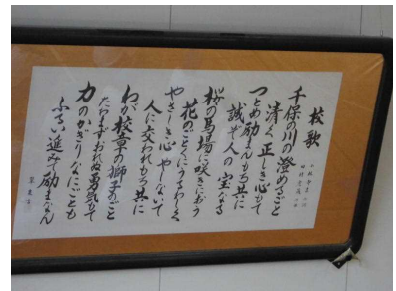 校歌
千保の川の澄めるごと
清く正しき心もて
つとめ励まんもろ共に
誠ぞ人の宝なる
桜の馬場に咲きにおう
花のごとくにうるわしく
やさしき心やしないて
人に交われもろ共に
わが校章の獅子のごと
たわまずおれぬ勇気もて
力のかぎりなにごとも
ふるい進みて励まなん